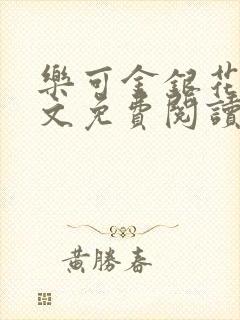 樂可金銀花
文免費閱讀
黃勝春